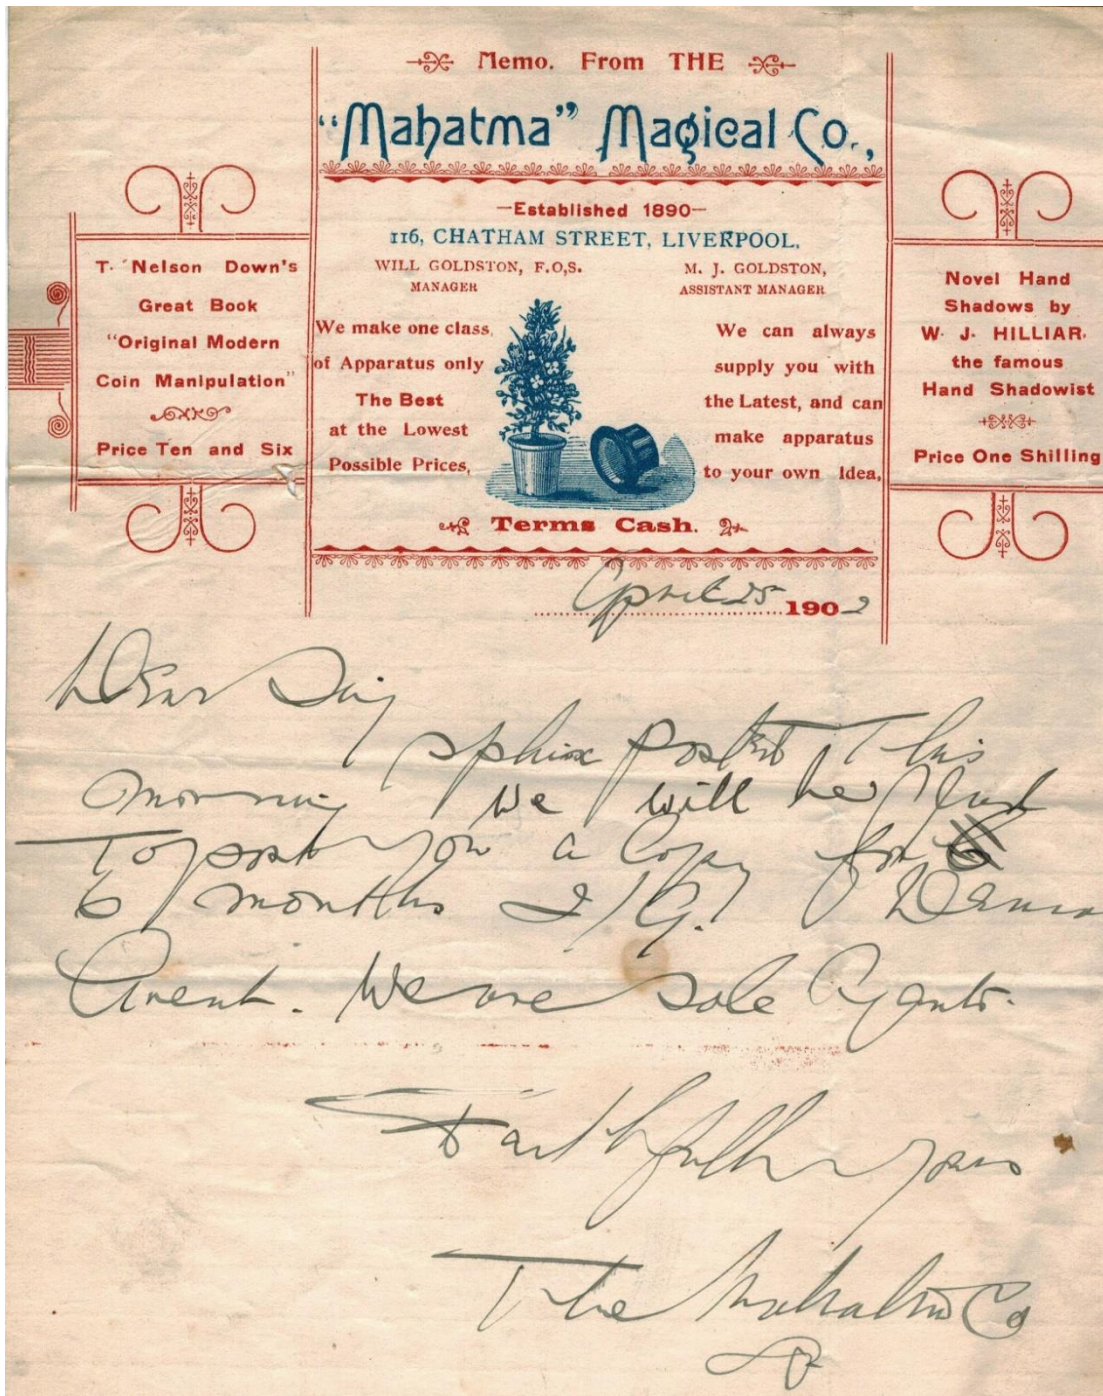 Memo. From THE
"Mahatma" Magical Co.,
—Established 1890—
116, CHATHAM STREET, LIVERPOOL,
WILL GOLDSTON, F.O,S.
MANAGER
M. J. GOLDSTON,
ASSISTANT MANAGER
T. Nelson Down's
Great Book
"Original Modern
Coin Manipulation"
Price Ten and Six
We make one class
of Apparatus only
The Best
at the Lowest
Possible Prices,
We can always
supply you with
the Latest, and can
make apparatus
to your own Idea,
Novel Hand
Shadows by
W. J. HILLIAR,
the famous
Hand Shadowist
Price One Shilling
Terms Cash.
April 25 1902
Dear Sir
Sphinx posted this
morning We will be glad
To post you a Copy for
6 months 2/9.
We are sole Agents.
Faithfully yours
The Mahatma Co